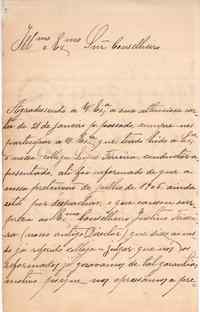 Ill.mo e Ex.mo Snr Conselheiro
Agradecendo a V. Ex.ª a sua attenciosa car-
ta de 21 de Janeiro p. passado, cumpre-me
participar a V. Ex.ª que tendo lido a
o nosso collega Ferreira, conductor a-
posentado, foi informado de que a
nossa pretensão de Julho de 1906, ainda
está por despachar, o que causou sur-
preza ao Ex.mo Conselheiro Justino Teixei-
ra (nosso antigo Director) que disse ao
já referido collega - julgar que nós os
reformados, já gosavamos de tal garantia,
motivo porque nos apressamos a